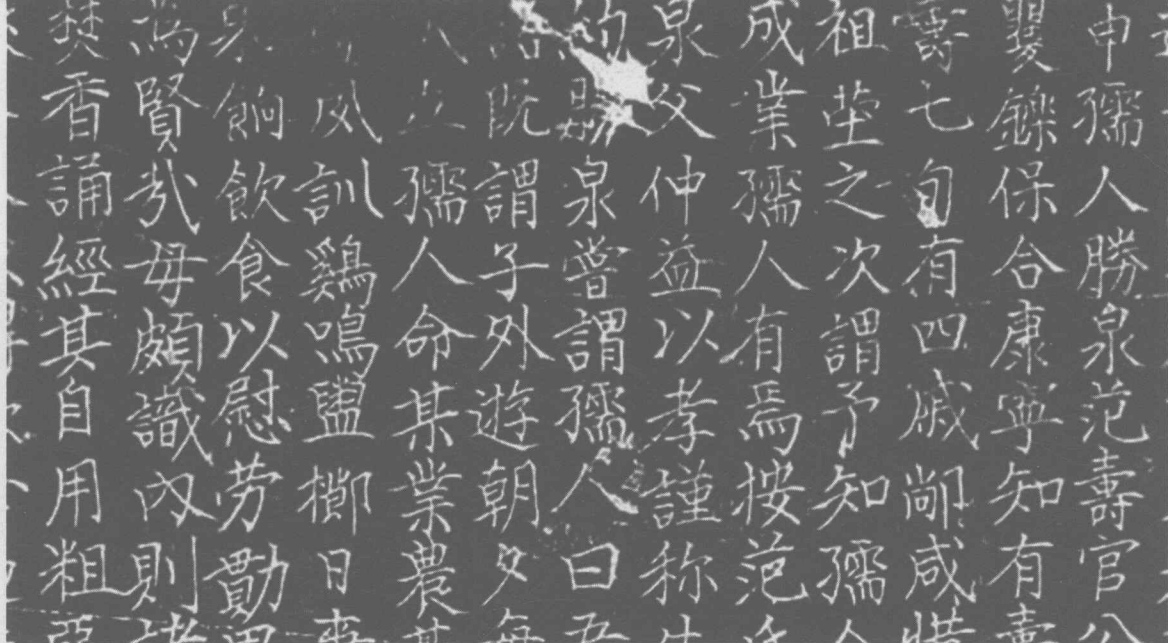 申孺人勝泉范壽官公
矍鑠保合康寧知有壽
壽七旬有四戚鄙咸惜
祖塋之次謂予知孺人
成業孺人有焉按范氏
泉父仲益以孝謹称生
的勵泉嘗謂孺人曰吾
既謂子外遊朝夕無
立孺人命某業農某
風訓鷄鳴盥櫛日
餉飲食以慰劳勩
為賢哉母頗識内則諸
焚香誦經其自用粗惡